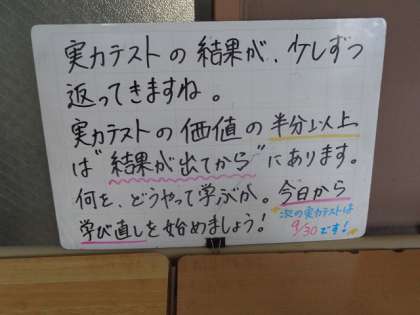 実力テストの結果が、少しずつ
返ってきますね。
実力テストの価値の半分以上
は"結果が出てから"にあります。
何を、どうやって学ぶか。今日から
学び直しを始めましょう!
次の実力テストは
9/30です!